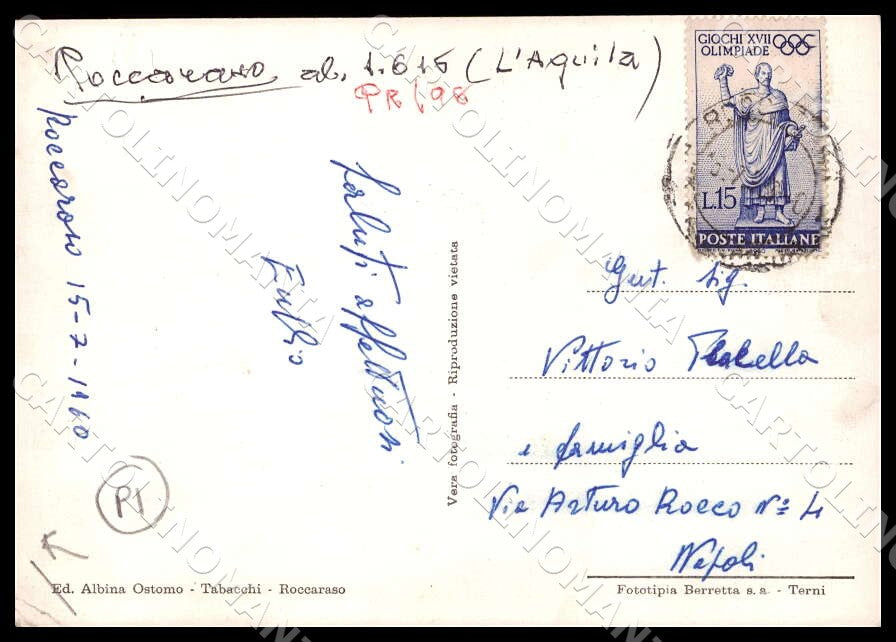 Roccaraso al. 1.615 (L'Aquila)
PR/98
GIOCHI XVII
OLIMPIADE
L.15
POSTE ITALIANE
Roccaraso 15-7-1960
Saluti affettuosi
Vera fotografia - Riproduzione vietata
Gent. Sig.
Vittorio
e famiglia
Via Arturo Rocco Nº 4
Napoli
PI
Ed. Albina Ostomo - Tabacchi - Roccaraso
Fototipia Berretta s.a. - Terni
CARTOLINOMANIA